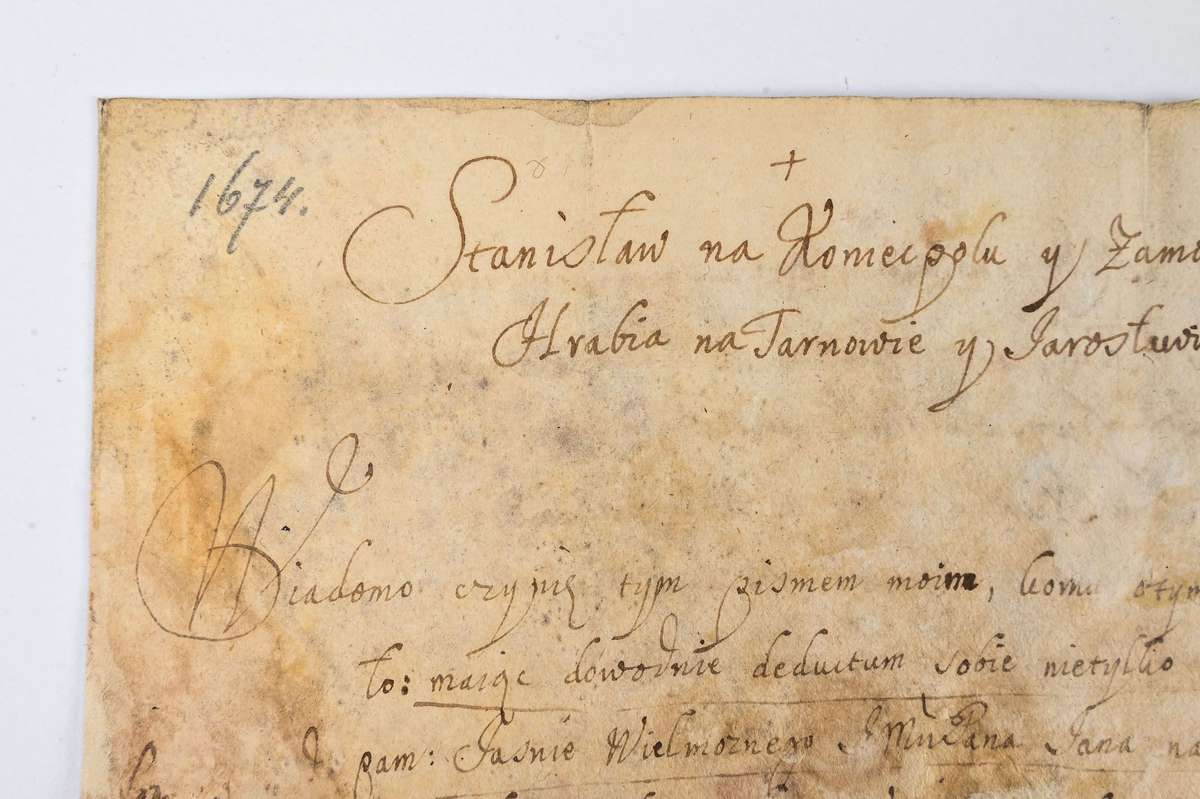 1674.
Stanisław na Koniecpolu y Zamo
Hrabia na Tarnowie y Jarosławi
Wiadomo czynię tym pismem moim, komu otym
to: maiąc dowodnie deductum sobie nietylko
pam: Jasnie Wielmoznego JMći Pana Jana na